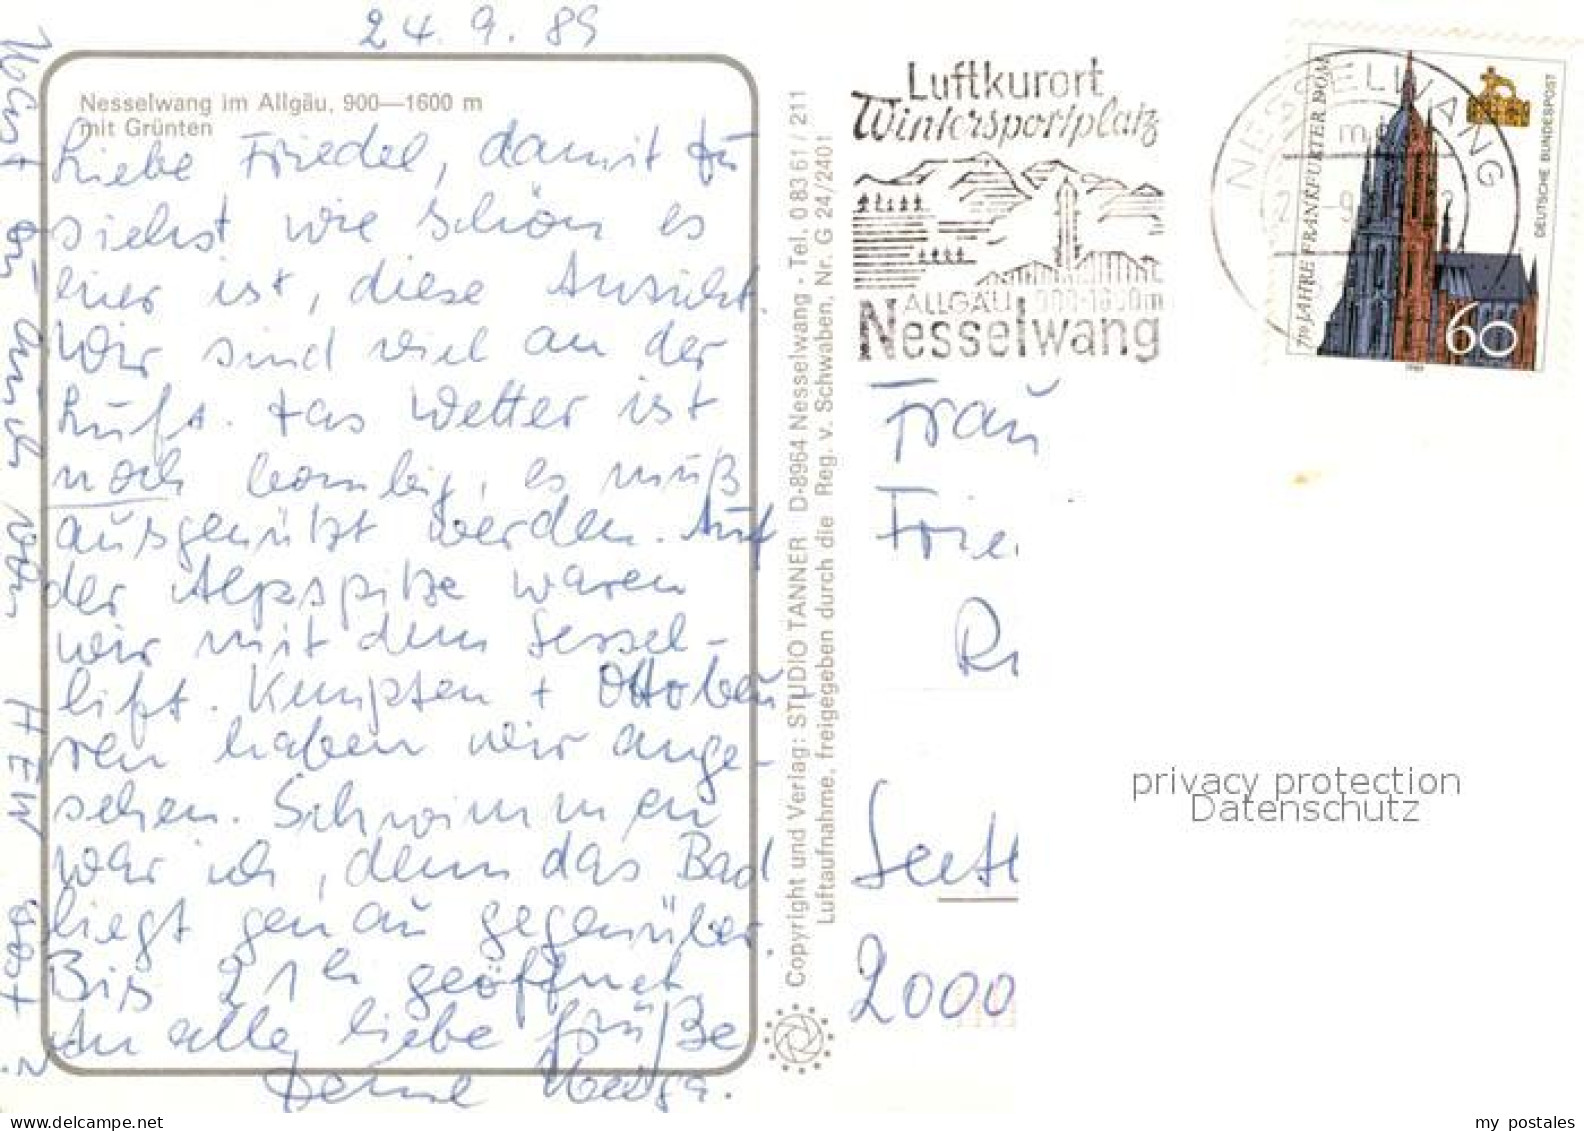 24. 9. 89
Nesselwang im Allgäu, 900—1600 m
mit Grünten
Liebe Friedel, damit Du
siehst wie schön es
hier ist, diese Ansicht.
Wir sind viel an der
Luft. Das Wetter ist
noch bombig, es muß
ausgenützt werden. Auf
der Alpspitze waren
wir mit dem Sessel-
lift. Kempten + Ottobeu
ren haben wir ange-
sehen. Schwimmen
war ich, denn das Bad
liegt genau gegenüber.
Bis 21h geöffnet
An alle liebe Grüße
Deine Helga.
Hast du auch von HEW
Copyright und Verlag: STUDIO TANNER D-8964 Nesselwang - Tel. 0 83 61 / 211
Luftaufnahme, freigegeben durch die Reg. v. Schwaben, Nr. G 24/2401
Luftkurort
Wintersportplatz
ALLGÄU 900-1600m
Nesselwang
NESSELWANG
710 JAHRE FRANKFURTER DOM
DEUTSCHE BUNDESPOST
60
1989
Frau
Frie
Ri
2000
privacy protection
Datenschutz
www.delcampe.net
my_postales